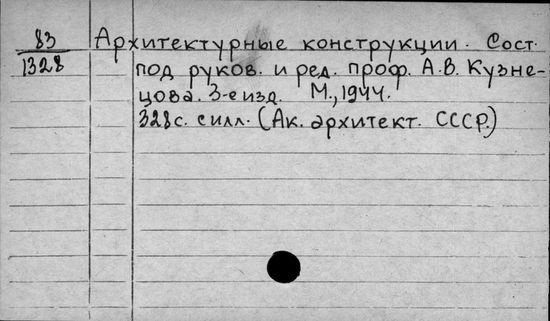 83 Архитектурные конструкции. Сост.
1328 под руков. и ред. проф. А.В. Кузне-
цова. 3-е изд. М., 1944.
328с. силл. (Ак. архитект. СССР.)